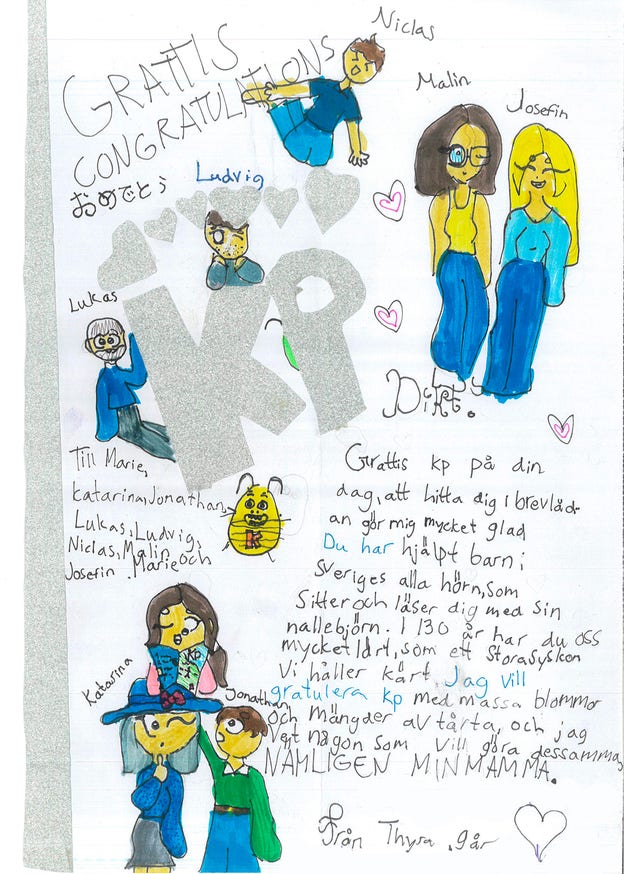 GRATTIS
CONGRATULATIONS
おめでとう
Niclas
Malin
Josefin
Ludvig
Lukas
KP
Dikt.
Till Marie,
katarina, Jonathan,
Lukas, Ludvig,
Niclas, Malin och
Josefin. Marie och
K
Grattis kp på din
dag, att hitta dig i brevlåd-
an gör mig mycket glad
Du har hjälpt barn i
Sveriges alla hörn, som
Sitter och läser dig med sin
nallebjörn. I 130 år har du oss
mycket lärt, som ett Storasysken
Vi håller kärt. Jag vill
gratulera kp med massa blommor
och mängder av tårta, och jag
Vet någon som vill göra dessamma,
NÄMLIGEN MIN MAMMA.
Katarina
KP
Jonathan
Från Thyra, 9år